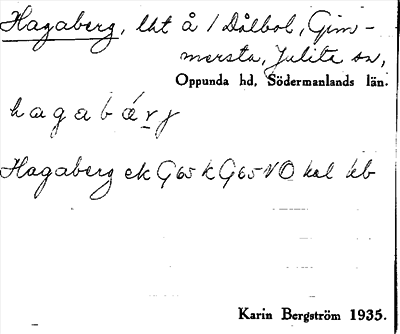 Hagaberg, lht å 1 Dålbol, Gim-
mersta, Julita sn,
Oppunda hd, Södermanlands län.
hagabárj
Hagaberg ek G65 k G65 NO hal kb
Karin Bergström 1935.